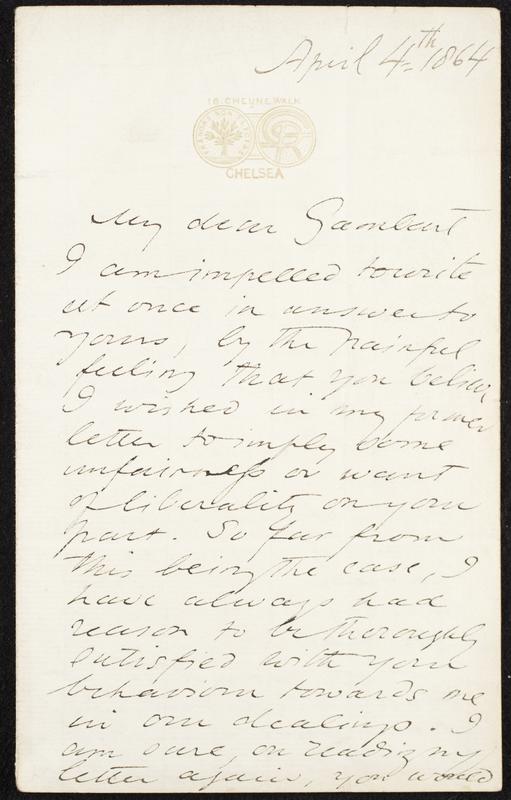 April 4th 1864
16. CHEYNE WALK
CHELSEA
My dear Gambart
I am impelled to write
at once in answer to
yours, by the painful
feeling that you believe
I wished in my former
letter to imply some
unfairness or want
of liberality on your
part. So far from
this being the case, I
have always had
reason to be thoroughly
satisfied with your
behaviour towards me
in our dealings. I
am sure, on reading my
letter again, you would